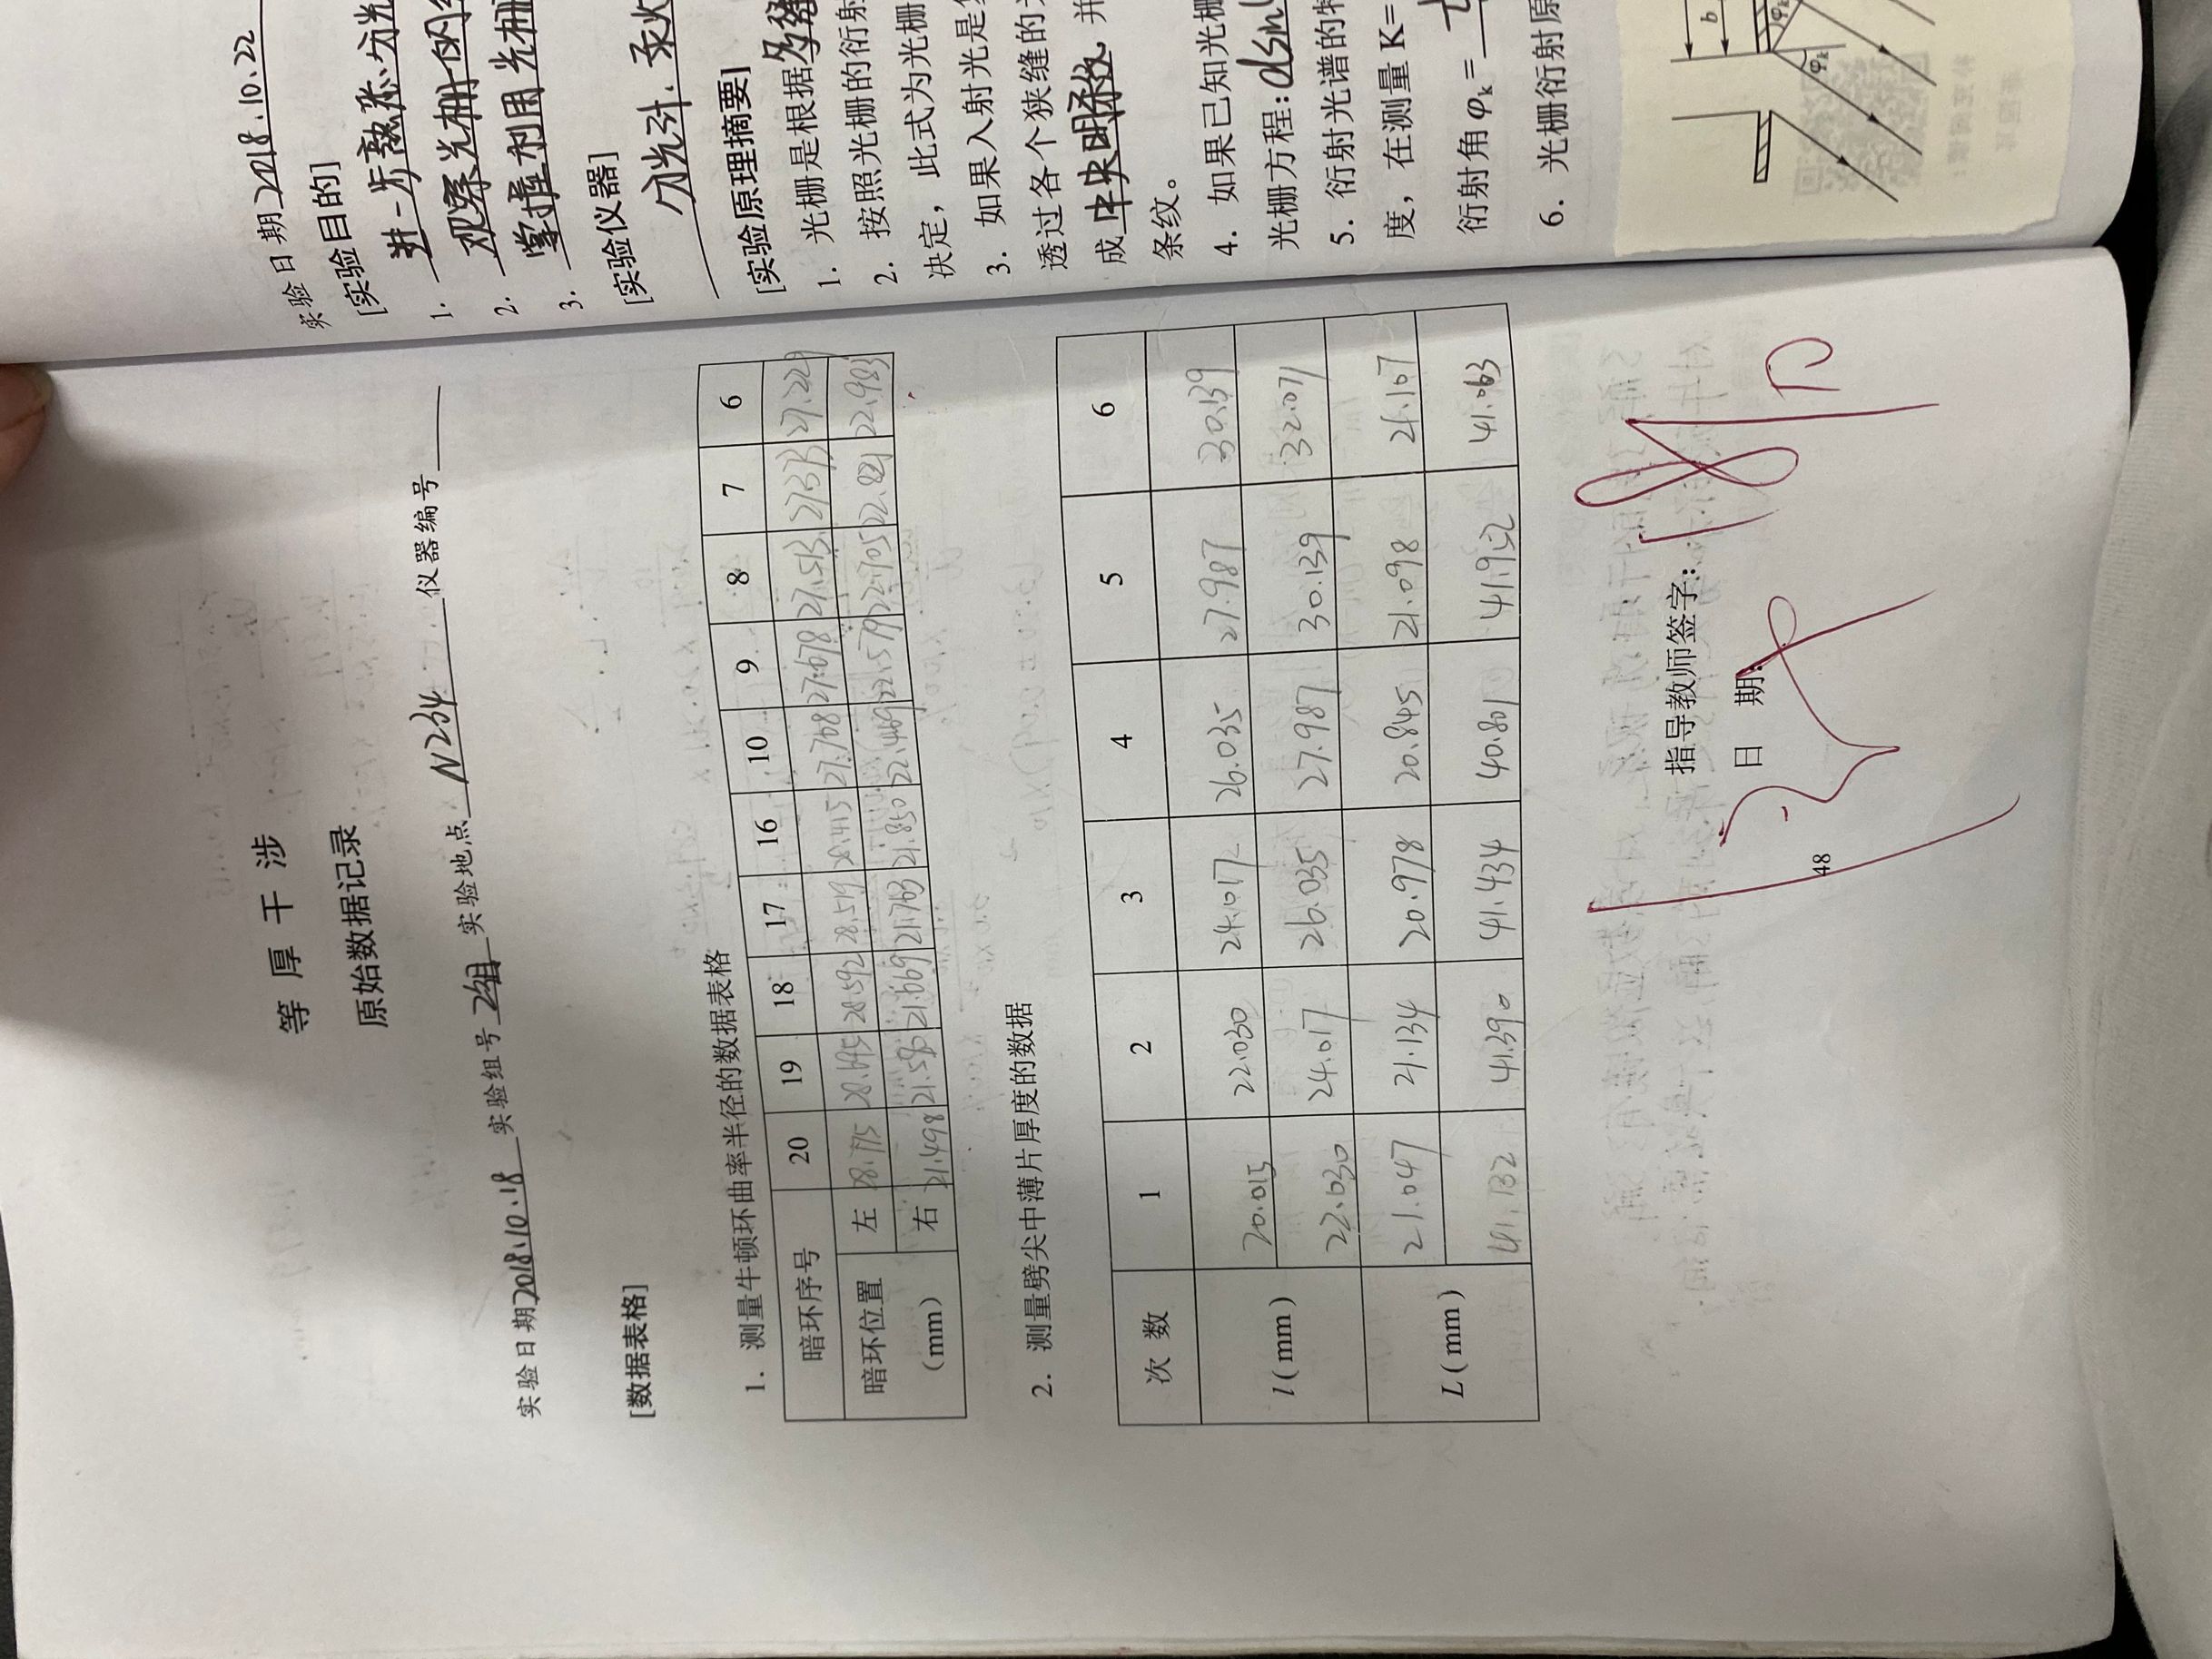 等厚干涉
原始数据记录
实验日期2018.10.18 实验组号2组 实验地点 N234 仪器编号
[数据表格]
1. 测量牛顿环曲率半径的数据表格
暗环序号 20 19 18 17 16 10 9 8 7 6
暗环位置（mm） 左 28.775 28.695 28.592 28.519 28.415 27.768 27.678 27.513 27.373 27.229
右 21.498 21.580 21.669 21.763 21.850 22.469 22.579 22.705 22.821 22.983
2. 测量劈尖中薄片厚度的数据
次数 1 2 3 4 5 6
l(mm) 20.015 22.030 24.017 26.035 27.987 30.139
22.030 24.017 26.035 27.987 30.139 32.071
L(mm) 21.047 21.134 20.978 20.845 21.098 21.107
41.132 41.390 41.434 40.801 41.952 41.063
指导教师签字：
日 期: 18/10
48
实验日期2018.10.22
[实验目的]
1. 进一步熟悉分光
2. 观察光栅的
3. 掌握利用光栅
[实验仪器]
分光计、汞灯
[实验原理摘要]
1. 光栅是根据多缝
2. 按照光栅的衍射
决定，此式为光栅
3. 如果入射光是
透过各个狭缝的
成中央明条纹，并
条纹。
4. 如果已知光栅
光栅方程:dsin
5. 衍射光谱的特
度，在测量 K=
衍射角 φk=
6. 光栅衍射原
b
φk
φk